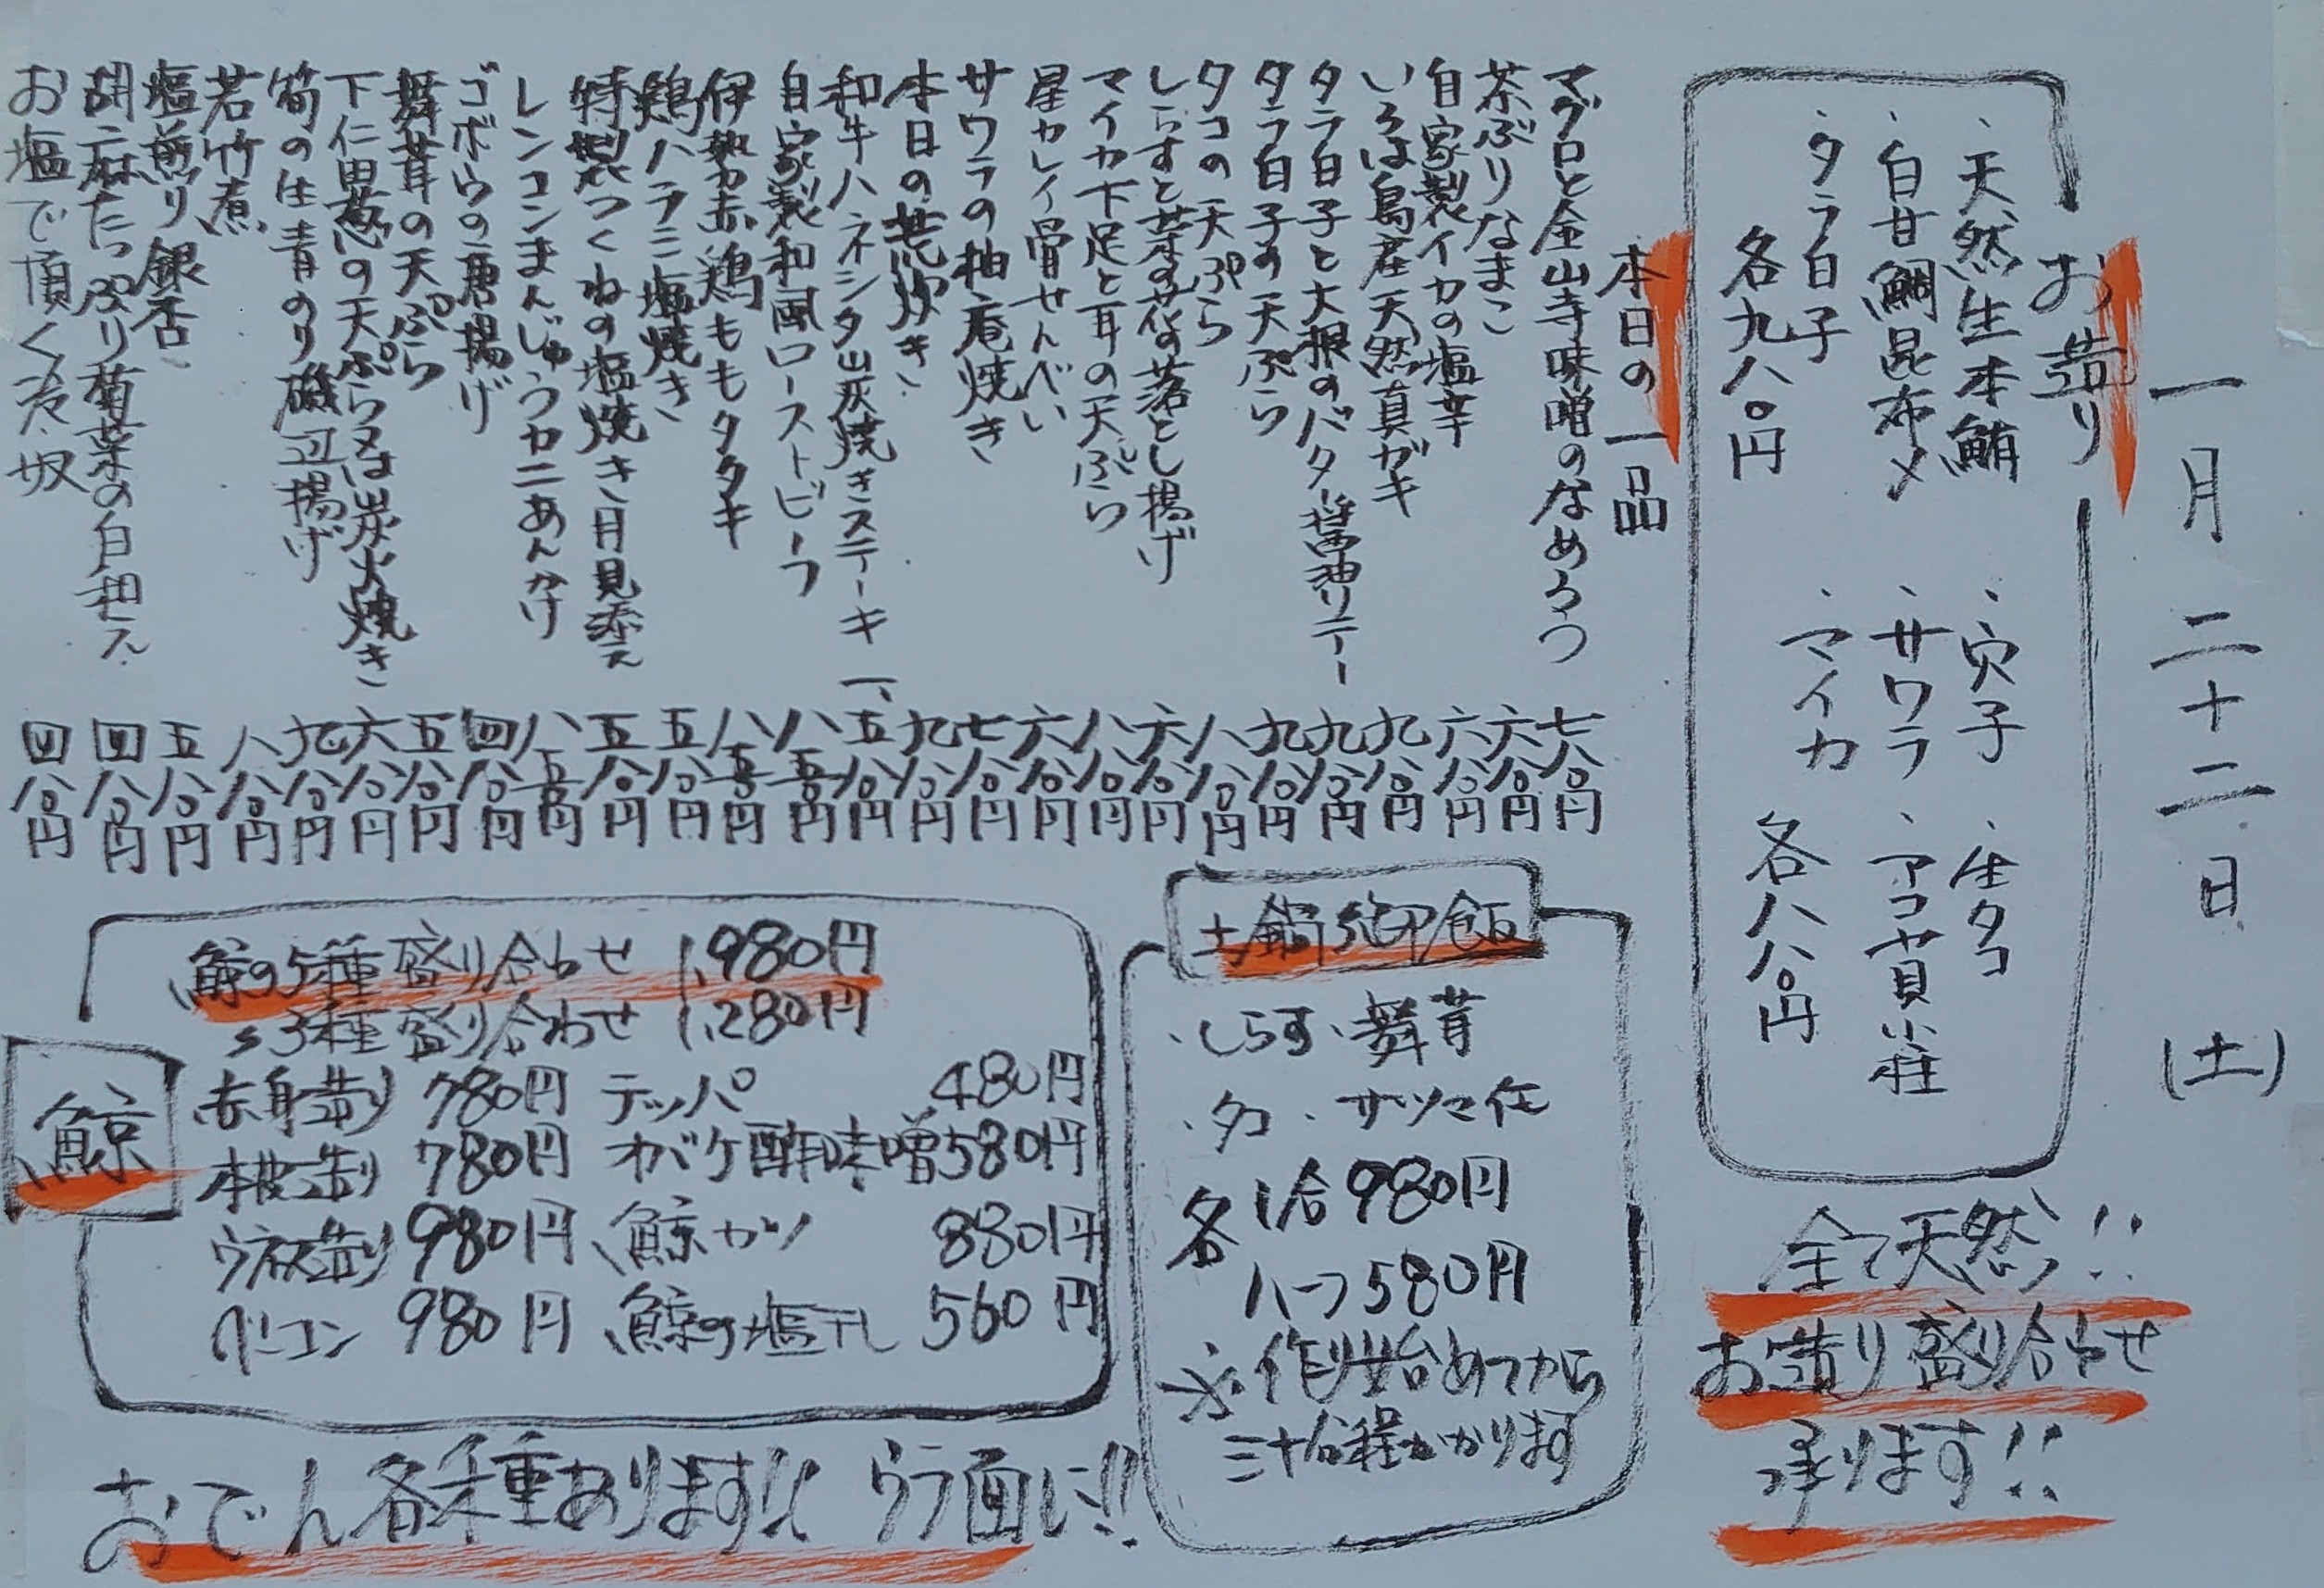 一月二十二日(土)
お造り
・天然生本鮪 ・穴子 ・生タコ
・白甘鯛昆布〆 ・サワラ ・アコヤ貝小柱
・タラ白子 ・マイカ
各九八〇円 各八八〇円
全て天然!!
お造り盛り合わせ
承ります!!
本日の一品
マグロと金山寺味噌のなめろう 七八〇円
茶ぶりなまこ 六八〇円
自家製イカの塩辛 六八〇円
いろは島産天然真ガキ 九八〇円
タラ白子と大根のバター醤油ソテー 九八〇円
タラ白子の天ぷら 九八〇円
タコの天ぷら 八八〇円
しらすと菜の花の落とし揚げ 六八〇円
マイカ下足と耳の天ぷら 八八〇円
星カレイ骨せんべい 六八〇円
サワラの柚庵焼き 七八〇円
本日の荒炊き 九八〇円
和牛ハネシタ山灰焼きステーキ 一、五八〇円
自家製和風ローストビーフ 八五〇円
伊勢赤鶏ももタタキ 八五〇円
鶏ハラミ塩焼き 五八〇円
特製つくねの塩焼き月見添え 五八〇円
レンコンまんじゅうカニあんかけ 八五〇円
ゴボウの唐揚げ 四八〇円
舞茸の天ぷら 五八〇円
下仁田葱の天ぷら又は炭火焼き 六八〇円
筍の生青のり磯辺揚げ 九八〇円
若竹煮 八八〇円
塩煎り銀杏 五八〇円
胡麻たっぷり菊菜の白和え 四八〇円
お塩で頂く冷奴 四八〇円
土鍋御飯
・しらす・舞茸
・タコ・サツマ任
各 1合980円
ハーフ580円
※作り始めてから
三十分程かかります
鯨
鯨の5種盛り合わせ 1,980円
〃3種盛り合わせ 1,280円
赤身造り 780円 テッパ 480円
本皮造り 780円 オバケ酢味噌580円
ウネス造り 980円 鯨カツ 880円
ベーコン 980円 鯨の塩干し 560円
おでん各種あります!! ウラ面に!!